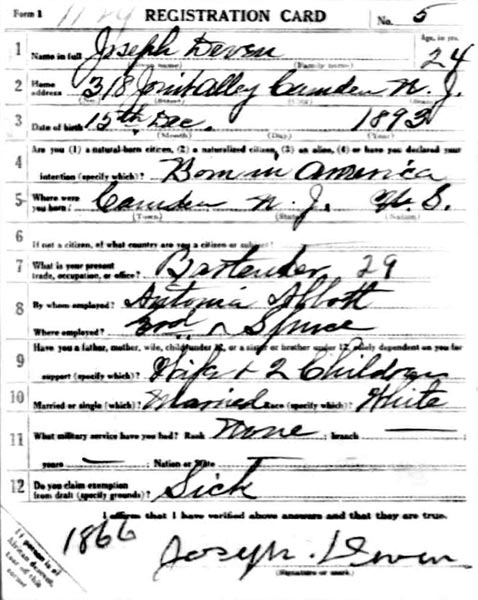 Form 1 REGISTRATION CARD No. 5
Age, in yrs.
1 Name in full Joseph Deven 24
(Given name) (Family name)
2 Home address 318 Joint Alley Camden N. J.
(No.) (Street) (City) (State)
3 Date of birth 15th Dec. 1893
(Month) (Day) (Year)
Are you (1) a natural-born citizen, (2) a naturalized citizen, (3) an alien, (4) or have you declared your
4 intention (specify which)? Born in America
5 Where were you born? Camden N. J. U. S.
(Town) (State) (Nation)
6 If not a citizen, of what country are you a citizen or subject?
7 What is your present trade, occupation, or office? Bartender 29
8 By whom employed? Antonia Abbott
Where employed? & Spruce
9 Have you a father, mother, wife, child under 12, or a sister or brother under 12, solely dependent on you for
support (specify which)? Wife + 2 Children
10 Married or single (which)? Married Race (specify which)? White
11 What military service have you had? Rank None ; branch —
years — ; Nation or State —
12 Do you claim exemption from draft (specify grounds)? Sick
I affirm that I have verified above answers and that they are true.
1866
Joseph Deven
(Signature or mark)
If person is of
African descent,
tear off this
corner